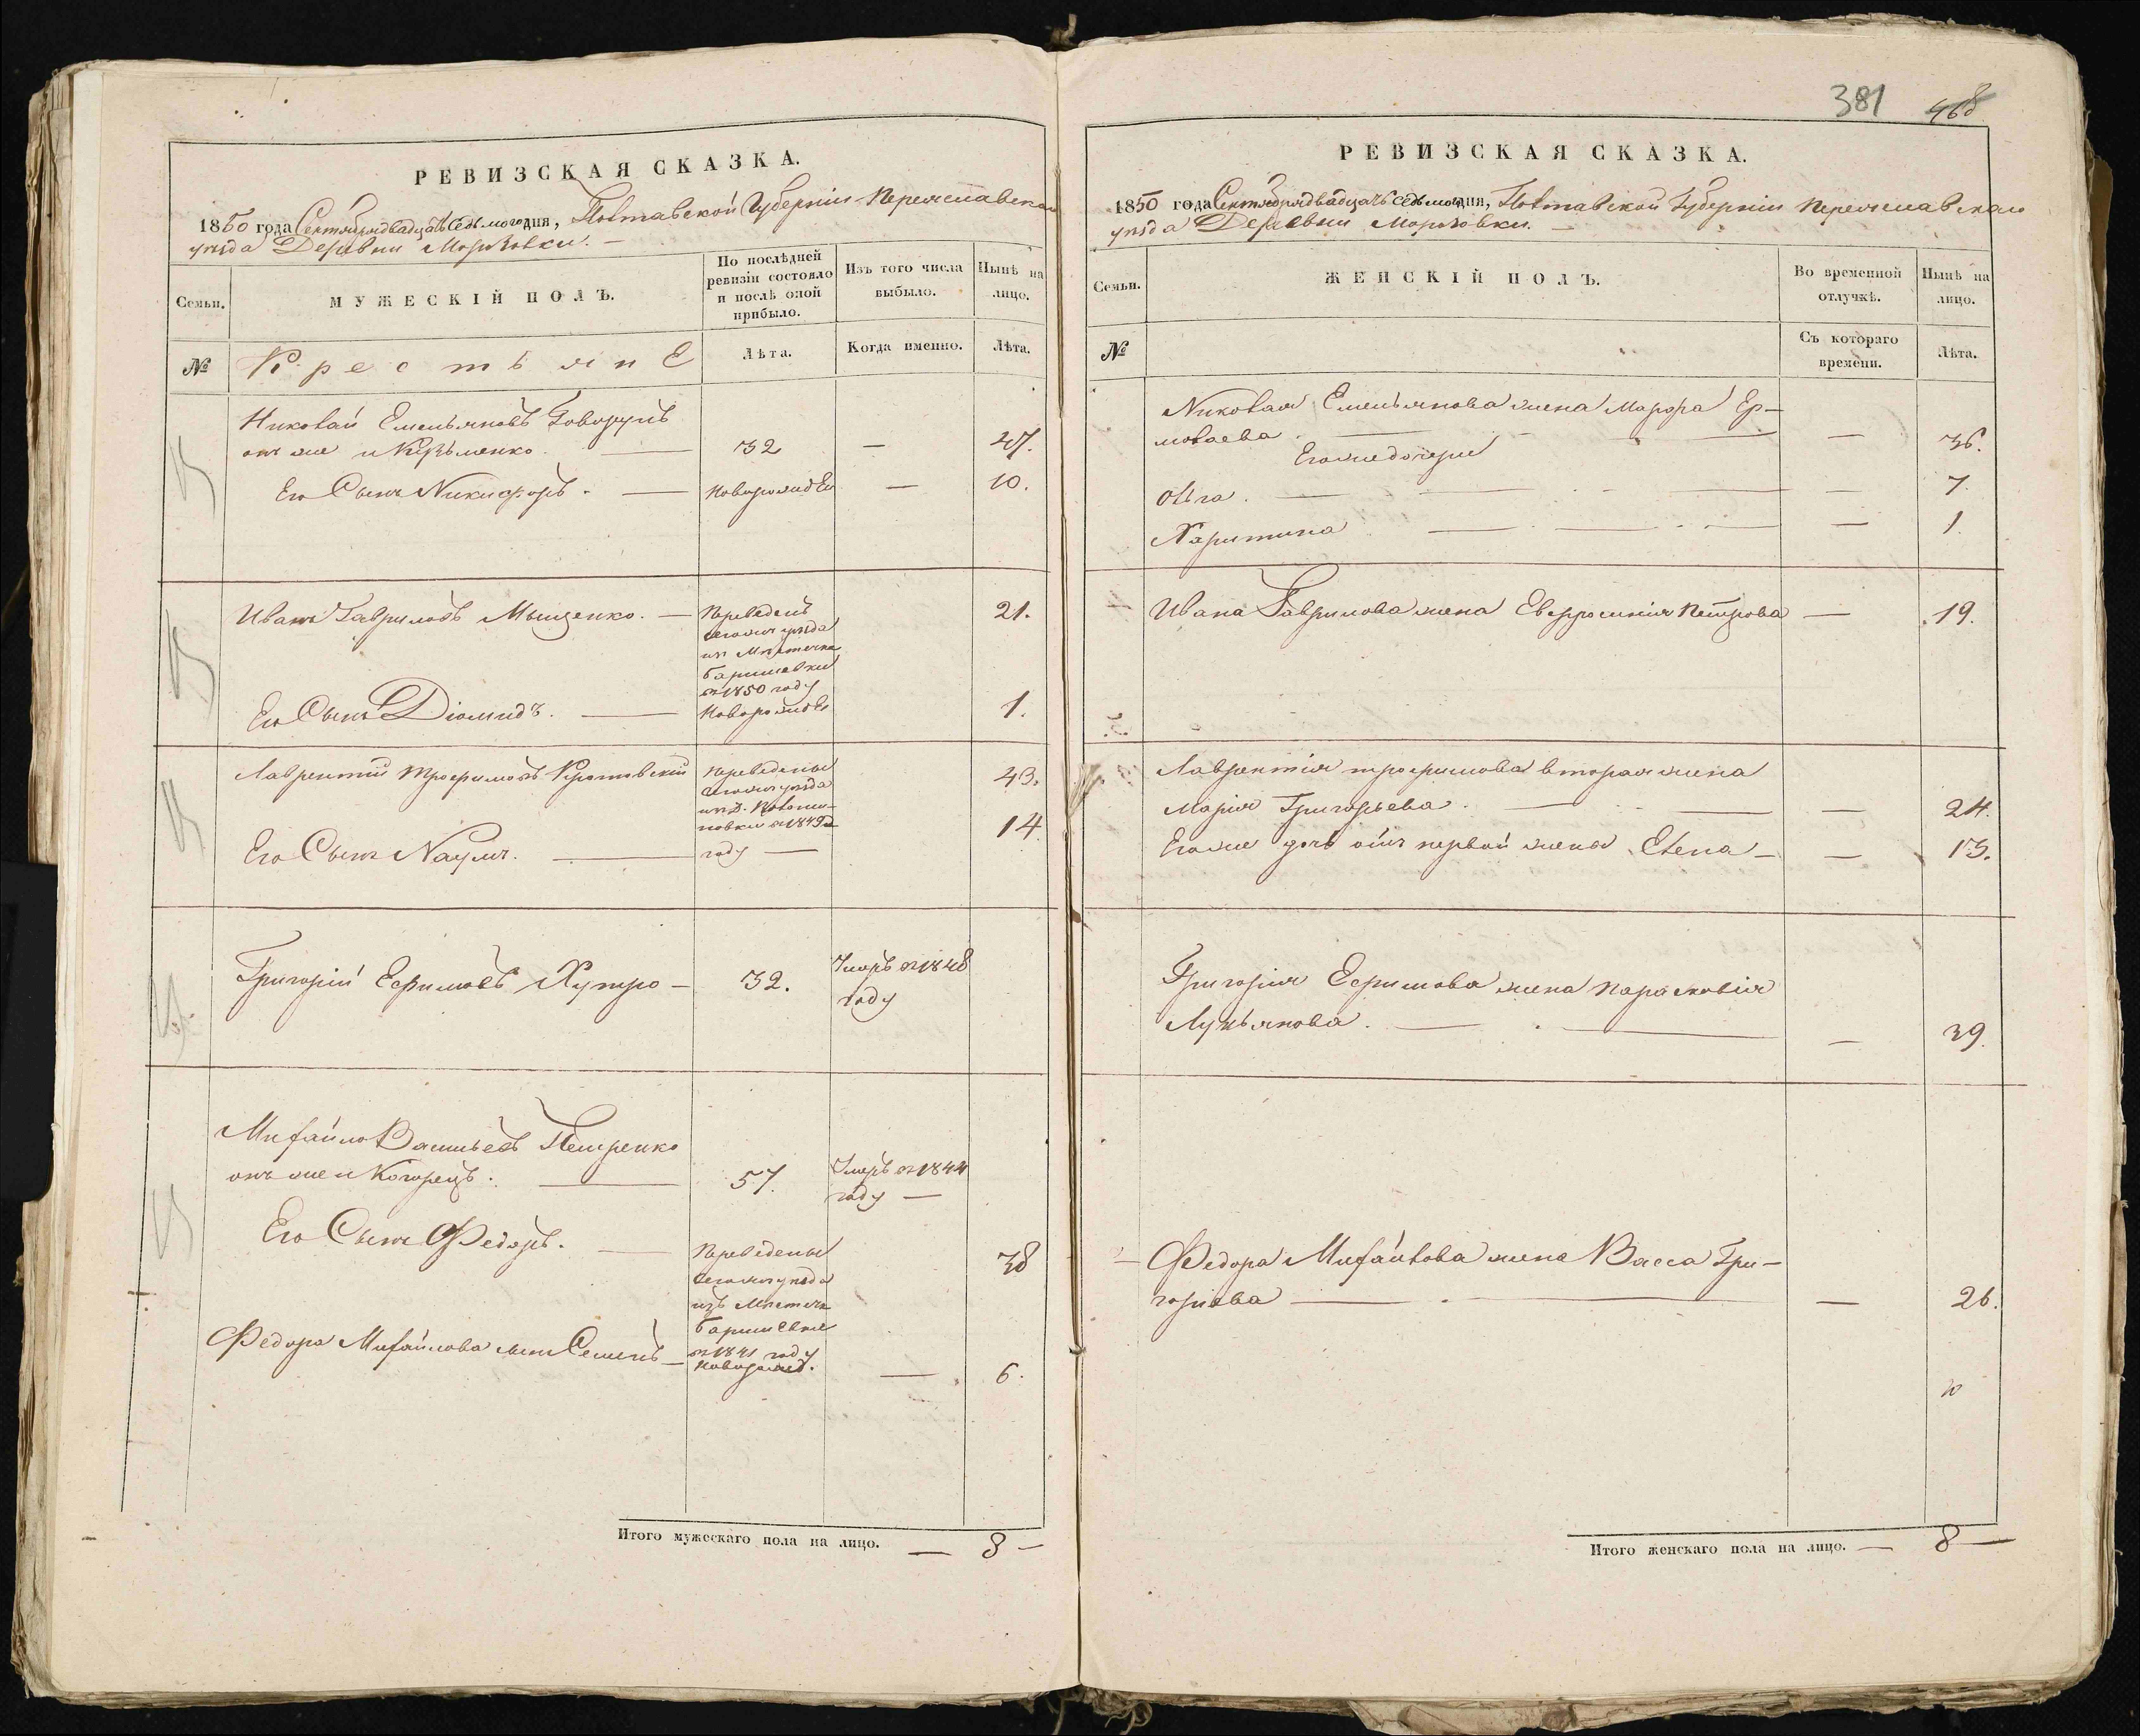 РЕВИЗСКАЯ СКАЗКА.
1850 года Сентября двадцать седьмого дня, Полтавской Губерніи Переяславскаго
уѣзда Деревни Морозовки. —
Семьи.
МУЖЕСКІЙ ПОЛЪ.
По послѣдней
ревизіи состояло
и послѣ оной
прибыло.
Изъ того числа
выбыло.
Нынѣ на
лицо.
№
Крестьяне
Лѣта.
Когда именно.
Лѣта.
Николай Емельяновъ Говорунъ
онъ же и Кузьменко. — 32 — 47.
Его Сынъ Никифоръ. — новорожден — 10.
Иванъ Гавриловъ Мыщенко. — Переведенъ 21.
сегожъ уѣзда
изъ Мѣстечка
Баришовки
въ 1850 году
Его Сынъ Діомидъ. — новорожде 1.
Лаврентій Трофимовъ Кротовскій Переведены 43.
сегожъ уѣзда
изъ д.
въ 1849м 14.
Его Сынъ Наумъ. — году —
Григорій Ефимовъ Хутро — 32. Умеръ въ 1848
году
Михайло Васильевъ Петренко
онъ же и Когорецъ. — 57. Умеръ въ 1844
году —
Его Сынъ Федоръ. — Переведены 38
сегожъ уѣзда
изъ Мѣстечк
Баришевки
въ 1841 году
Федора Михайлова сынъ Семенъ — новорожд. — 6.
Итого мужескаго пола на лицо. — 8 —
381 468
РЕВИЗСКАЯ СКАЗКА.
1850 года Сентября двадцать седьмого дня, Полтавской Губерніи Переяславскаго
уѣзда Деревни Морозовки. —
Семьи.
ЖЕНСКІЙ ПОЛЪ.
Во временной
отлучкѣ.
Нынѣ на
лицо.
№
Съ котораго
времени.
Лѣта.
Николая Емельянова жена Марфа Ер-
молаева — — 36.
Егоже дочери
Ольга. — — 7.
Харитина — — 1.
Ивана Гаврилова жена Евфросинія Петрова — 19.
Лаврентія Трофимова вторая жена
Марія Григорьева. — — 24.
Егоже дочь отъ первой жены Елена — — 13.
Григорія Ефимова жена Парасковія
Лукьянова. — — 39.
Федора Михайлова жена Васса Гри-
горіева — — 26.
Итого женскаго пола на лицо. — 8 —